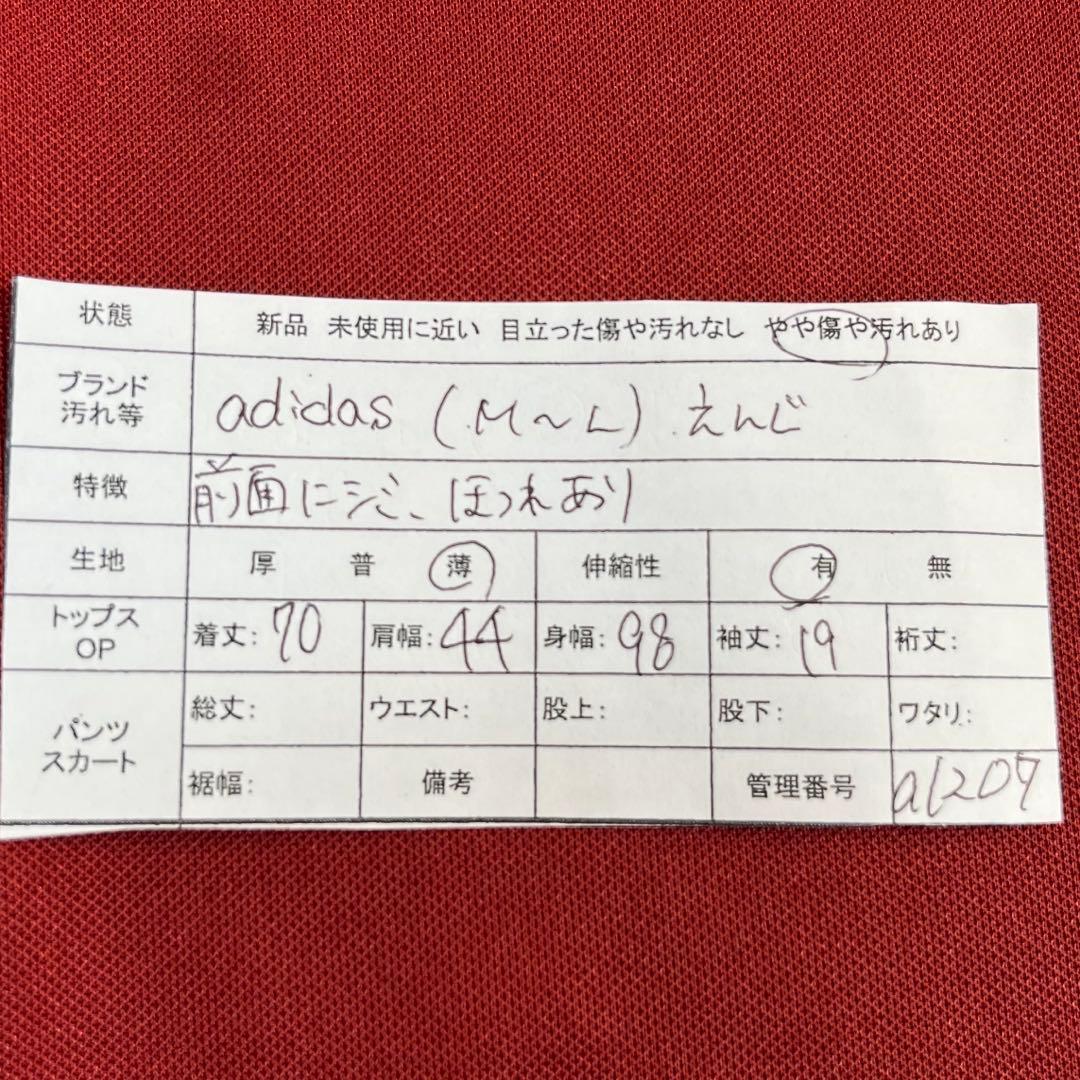 状態 新品 未使用に近い 目立った傷や汚れなし やや傷や汚れあり
ブランド 汚れ等 adidas (M〜L) えんじ
特徴 前面にシミ、ほつれあり
生地 厚 普 薄 伸縮性 有 無
トップス OP 着丈:70 肩幅:44 身幅:98 袖丈:19 裄丈:
パンツ スカート 総丈: ウエスト: 股上: 股下: ワタリ:
裾幅: 備考 管理番号 a1207